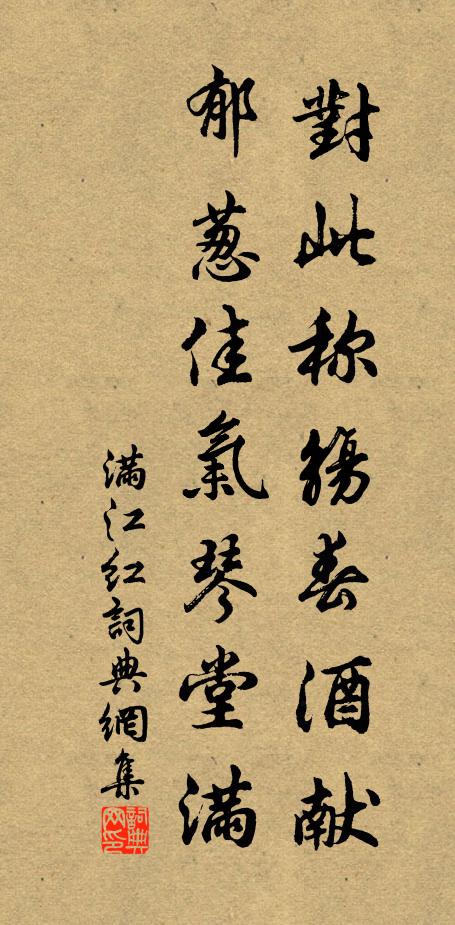 對此称觴春酒献
郁葱佳氣琴堂滿
滿江红詞典網集
詞典網印